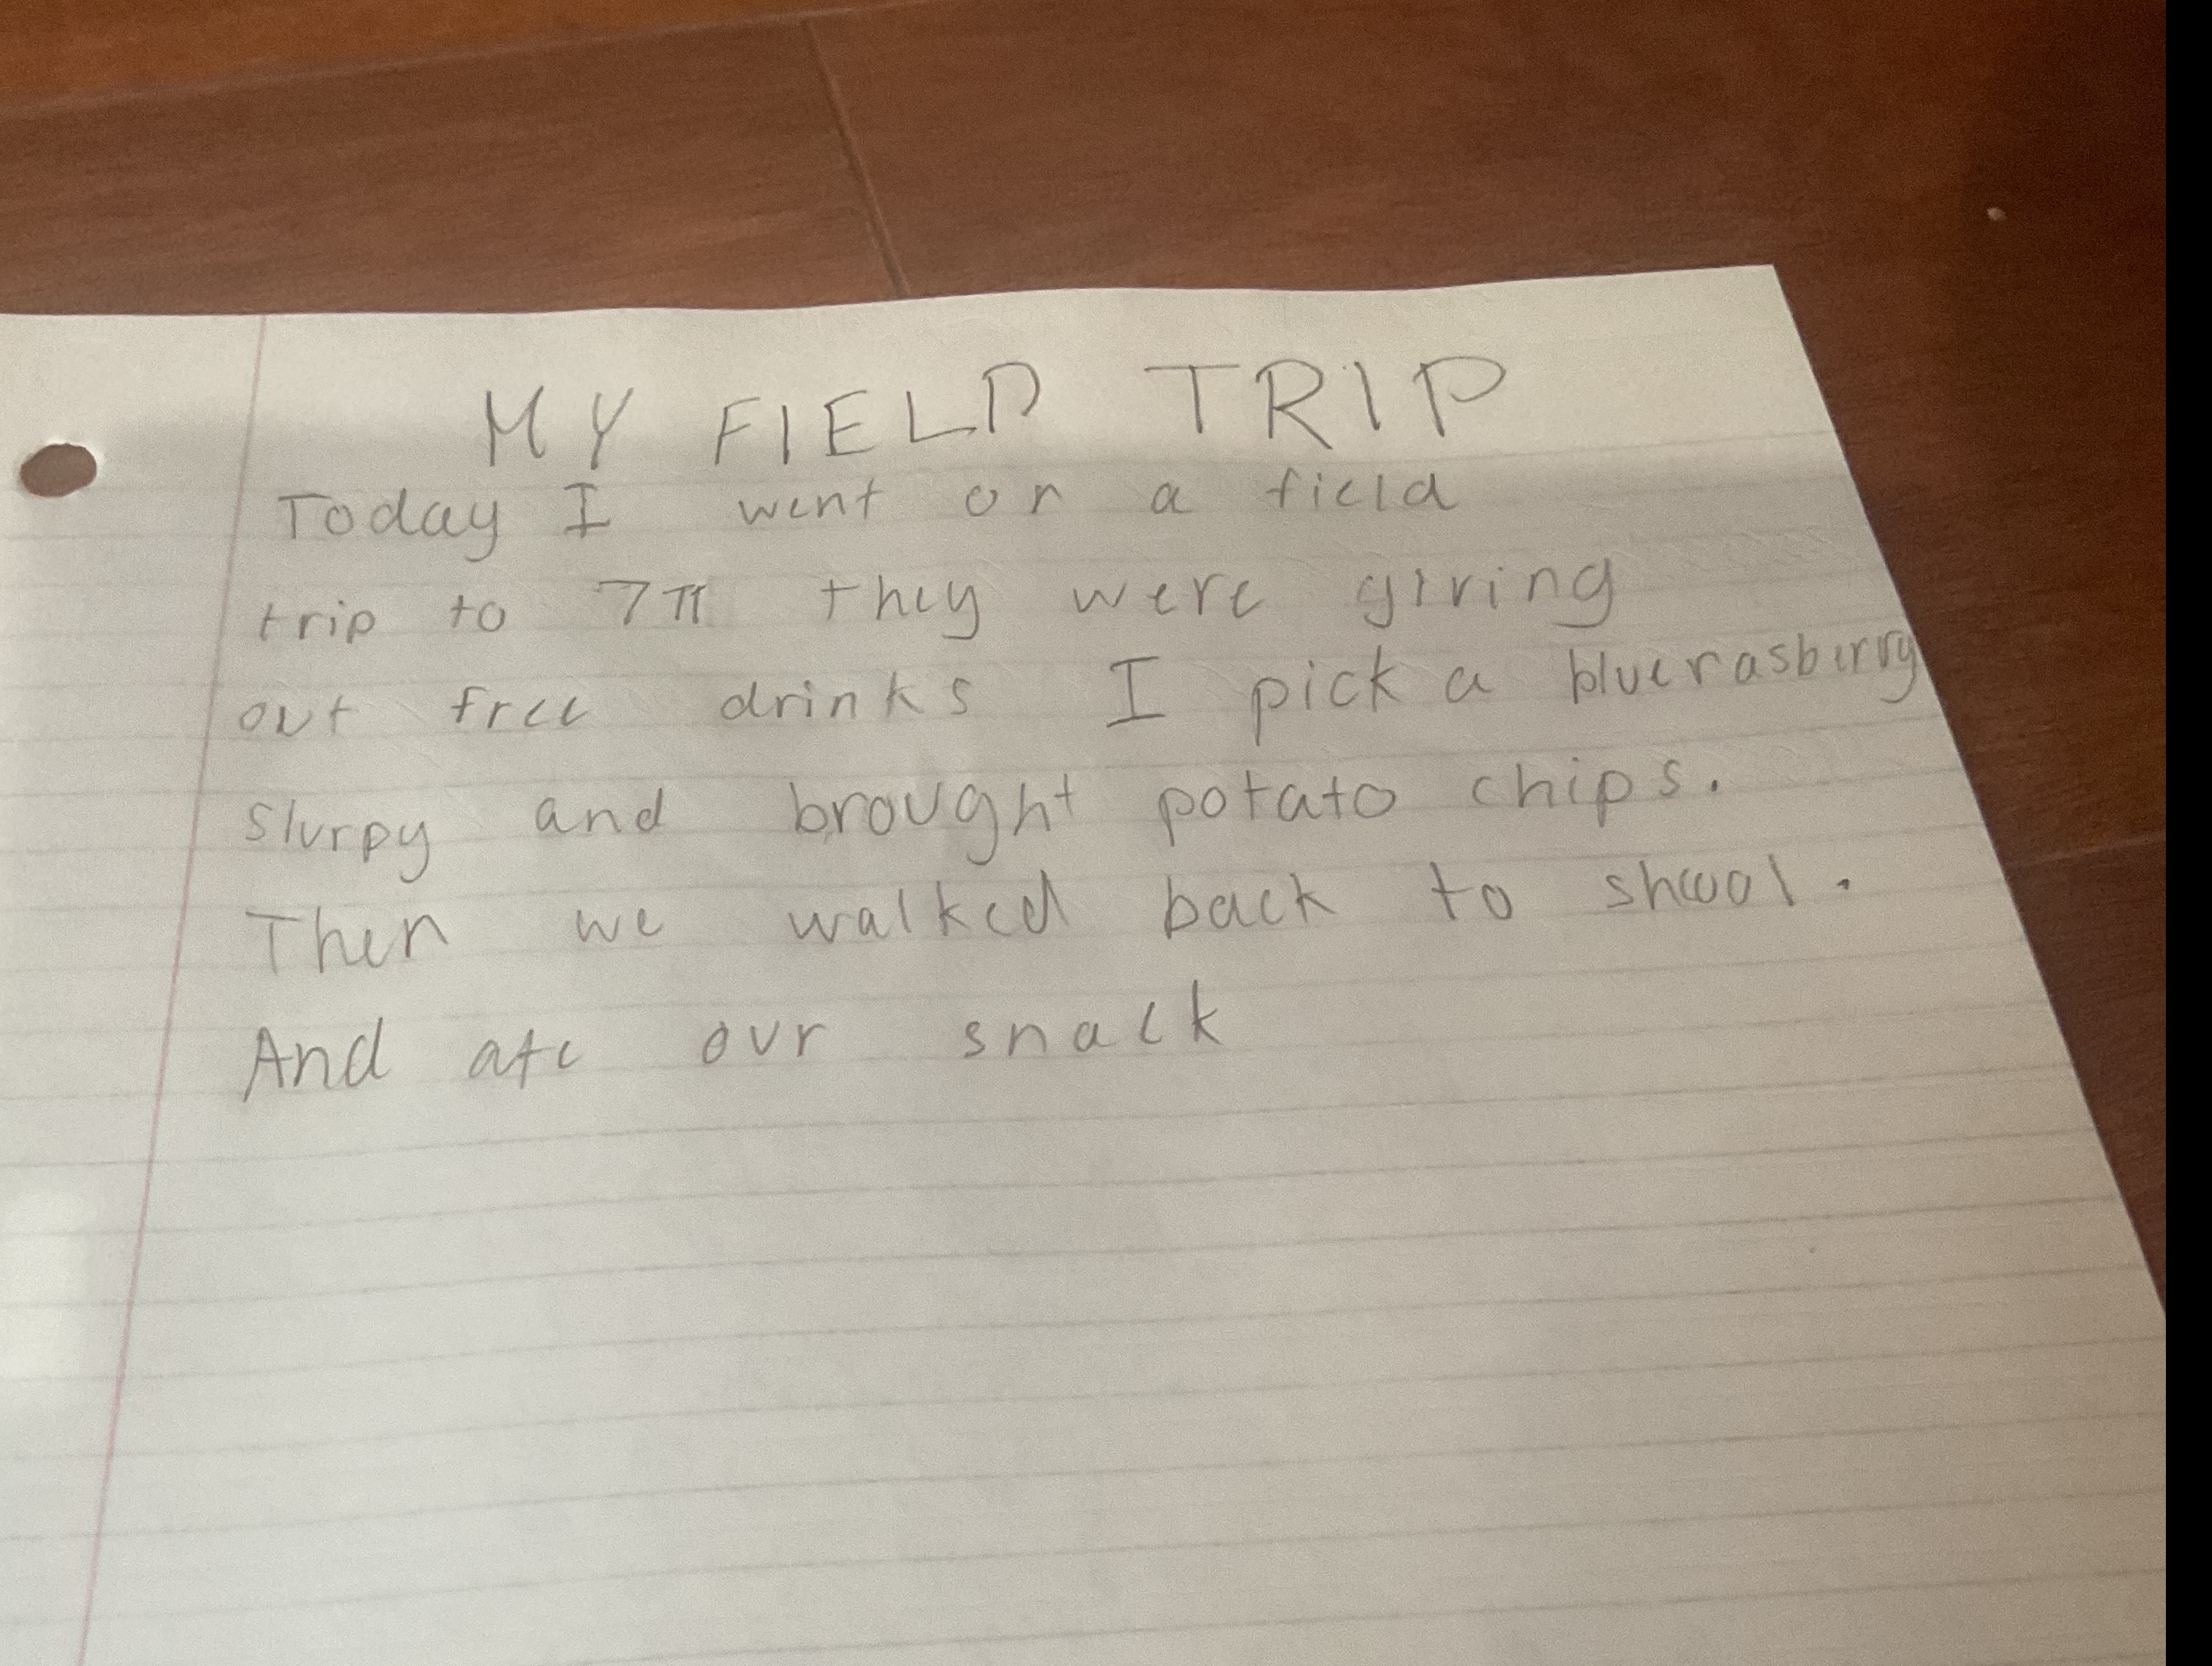 MY FIELD TRIP
Today I went on a field
trip to 7II they were giving
out free drinks I pick a blue rasberry
slurpy and brought potato chips.
Then we walked back to shcool.
And ate our snack